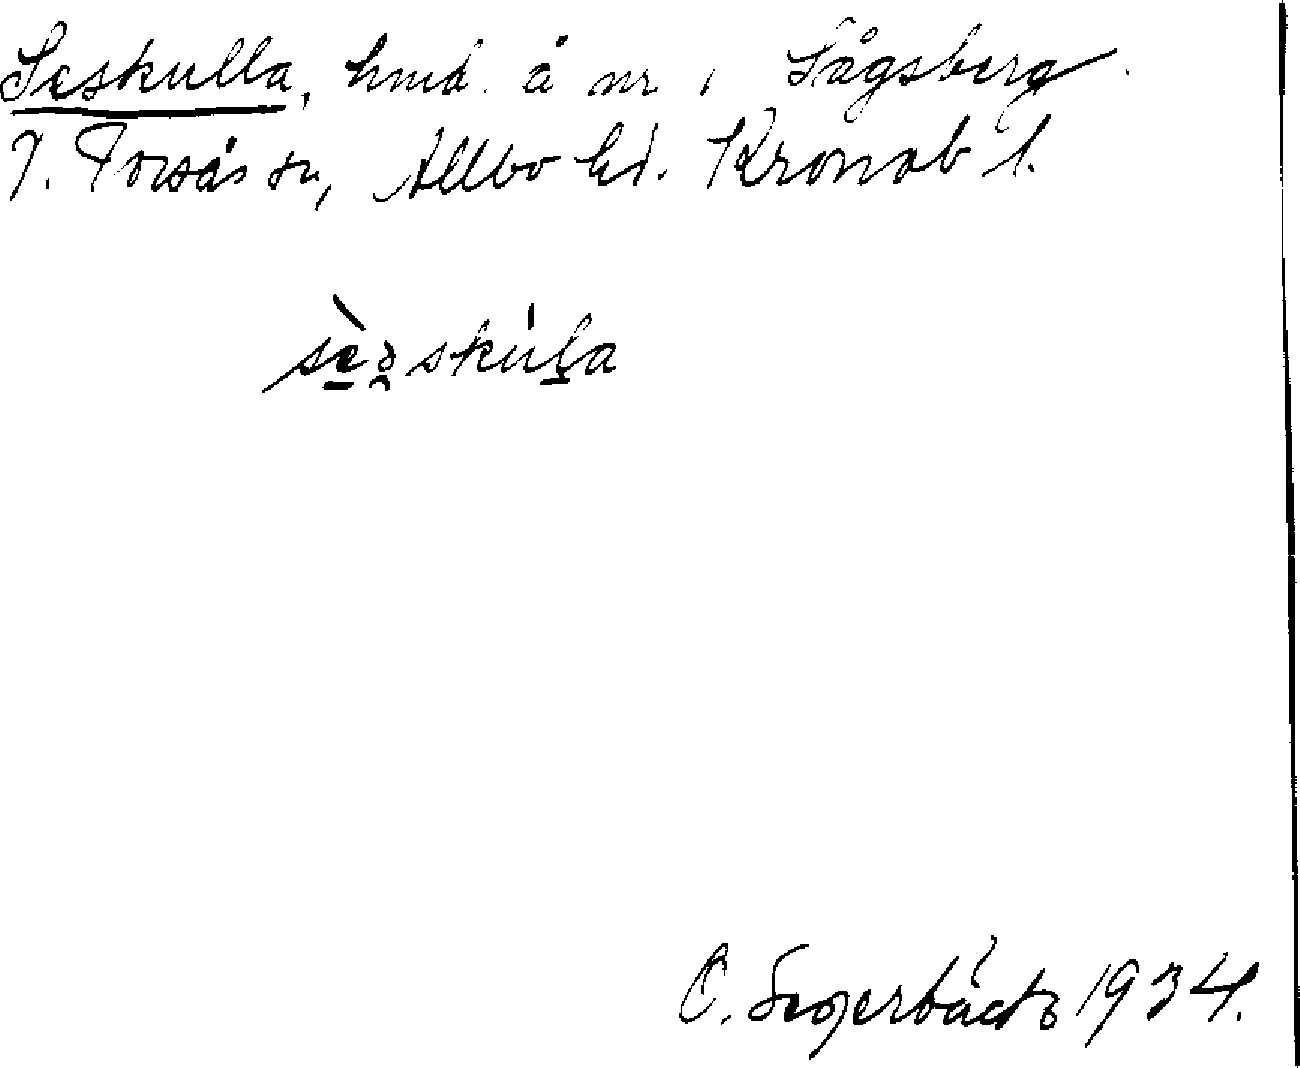 Seskulla, hmd. å nr 1 Sågsberg.
V. Torsås sn, Allbo hd. Kronob l.
sèə̯skúla
C. Segerbäck 1934.